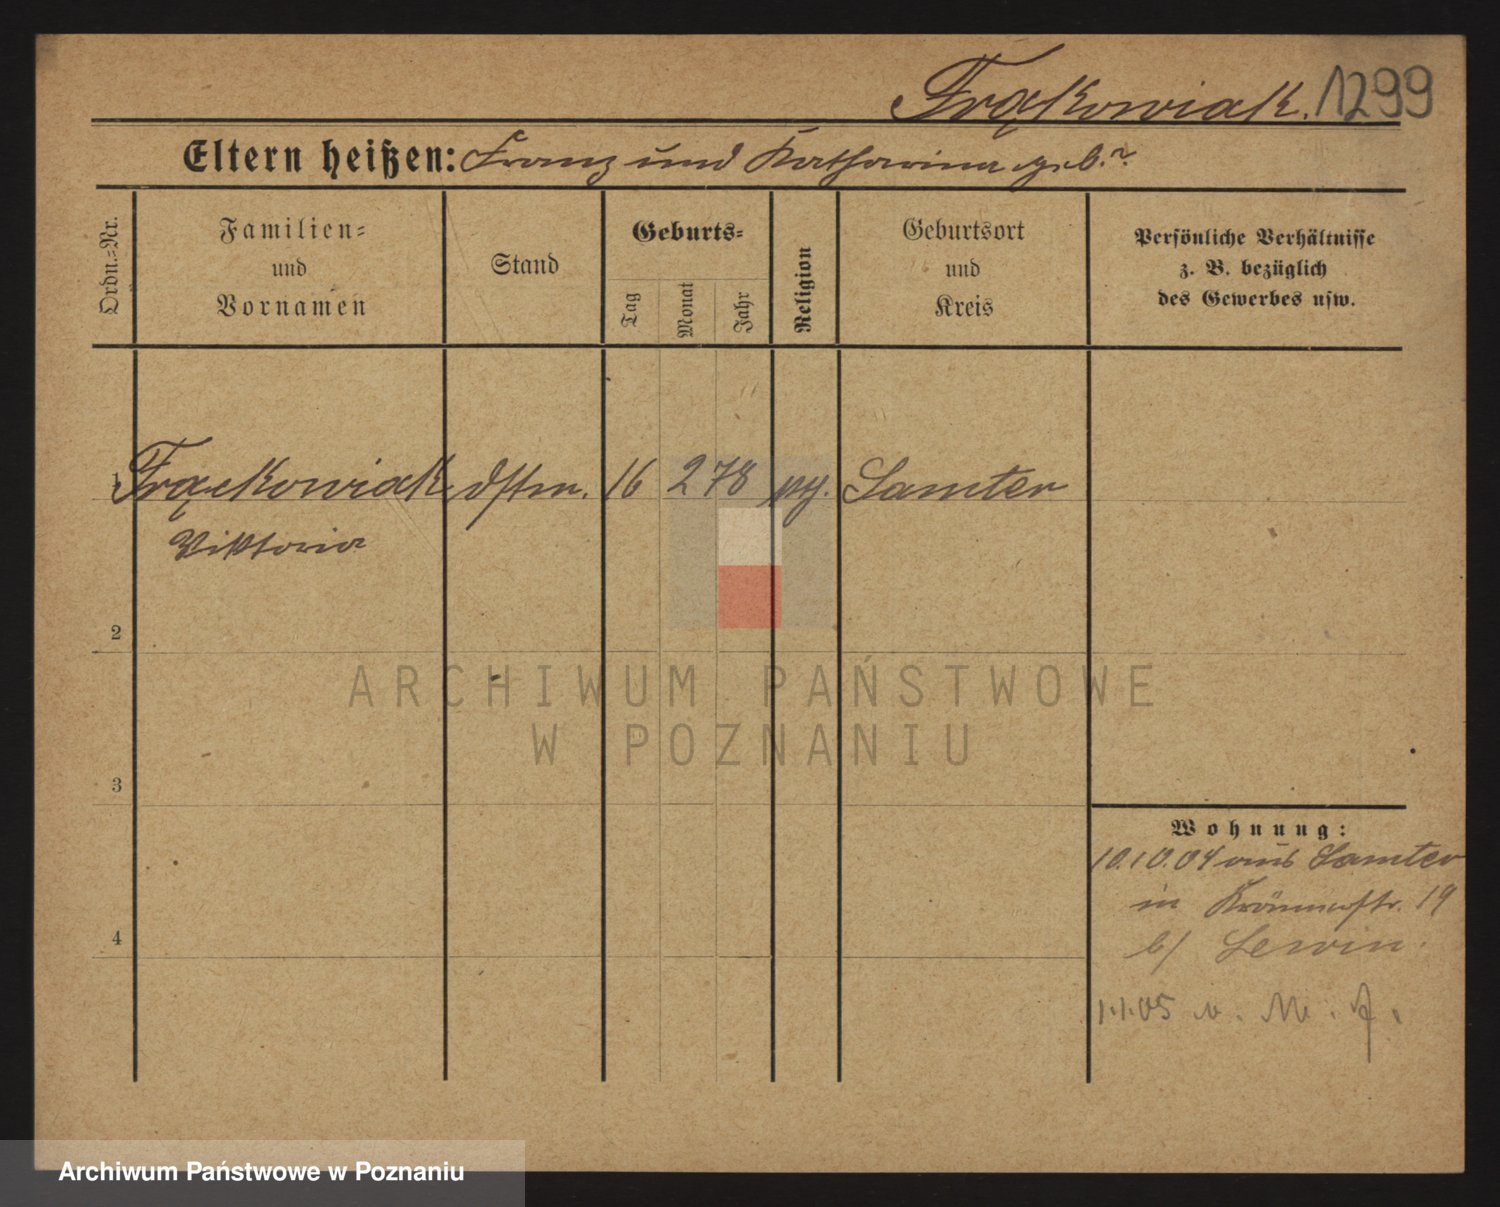 Frąckowiak. 1299
Eltern heißen: Franz und Katharina geb. ?
Ordn.-Nr.
Familien-
und
Vornamen
Stand
Geburts-
Tag
Monat
Jahr
Religion
Geburtsort
und
Kreis
Persönliche Verhältnisse
z. B. bezüglich
des Gewerbes usw.
1 Frąckowiak dstm. 16 2 78 Samter
Viktoria
2
3
4
Wohnung:
10.10.04 aus Samter
in Krämerstr. 19
b/ Lewin.
1.1.05
ARCHIWUM PAŃSTWOWE
W POZNANIU
Archiwum Państwowe w Poznaniu